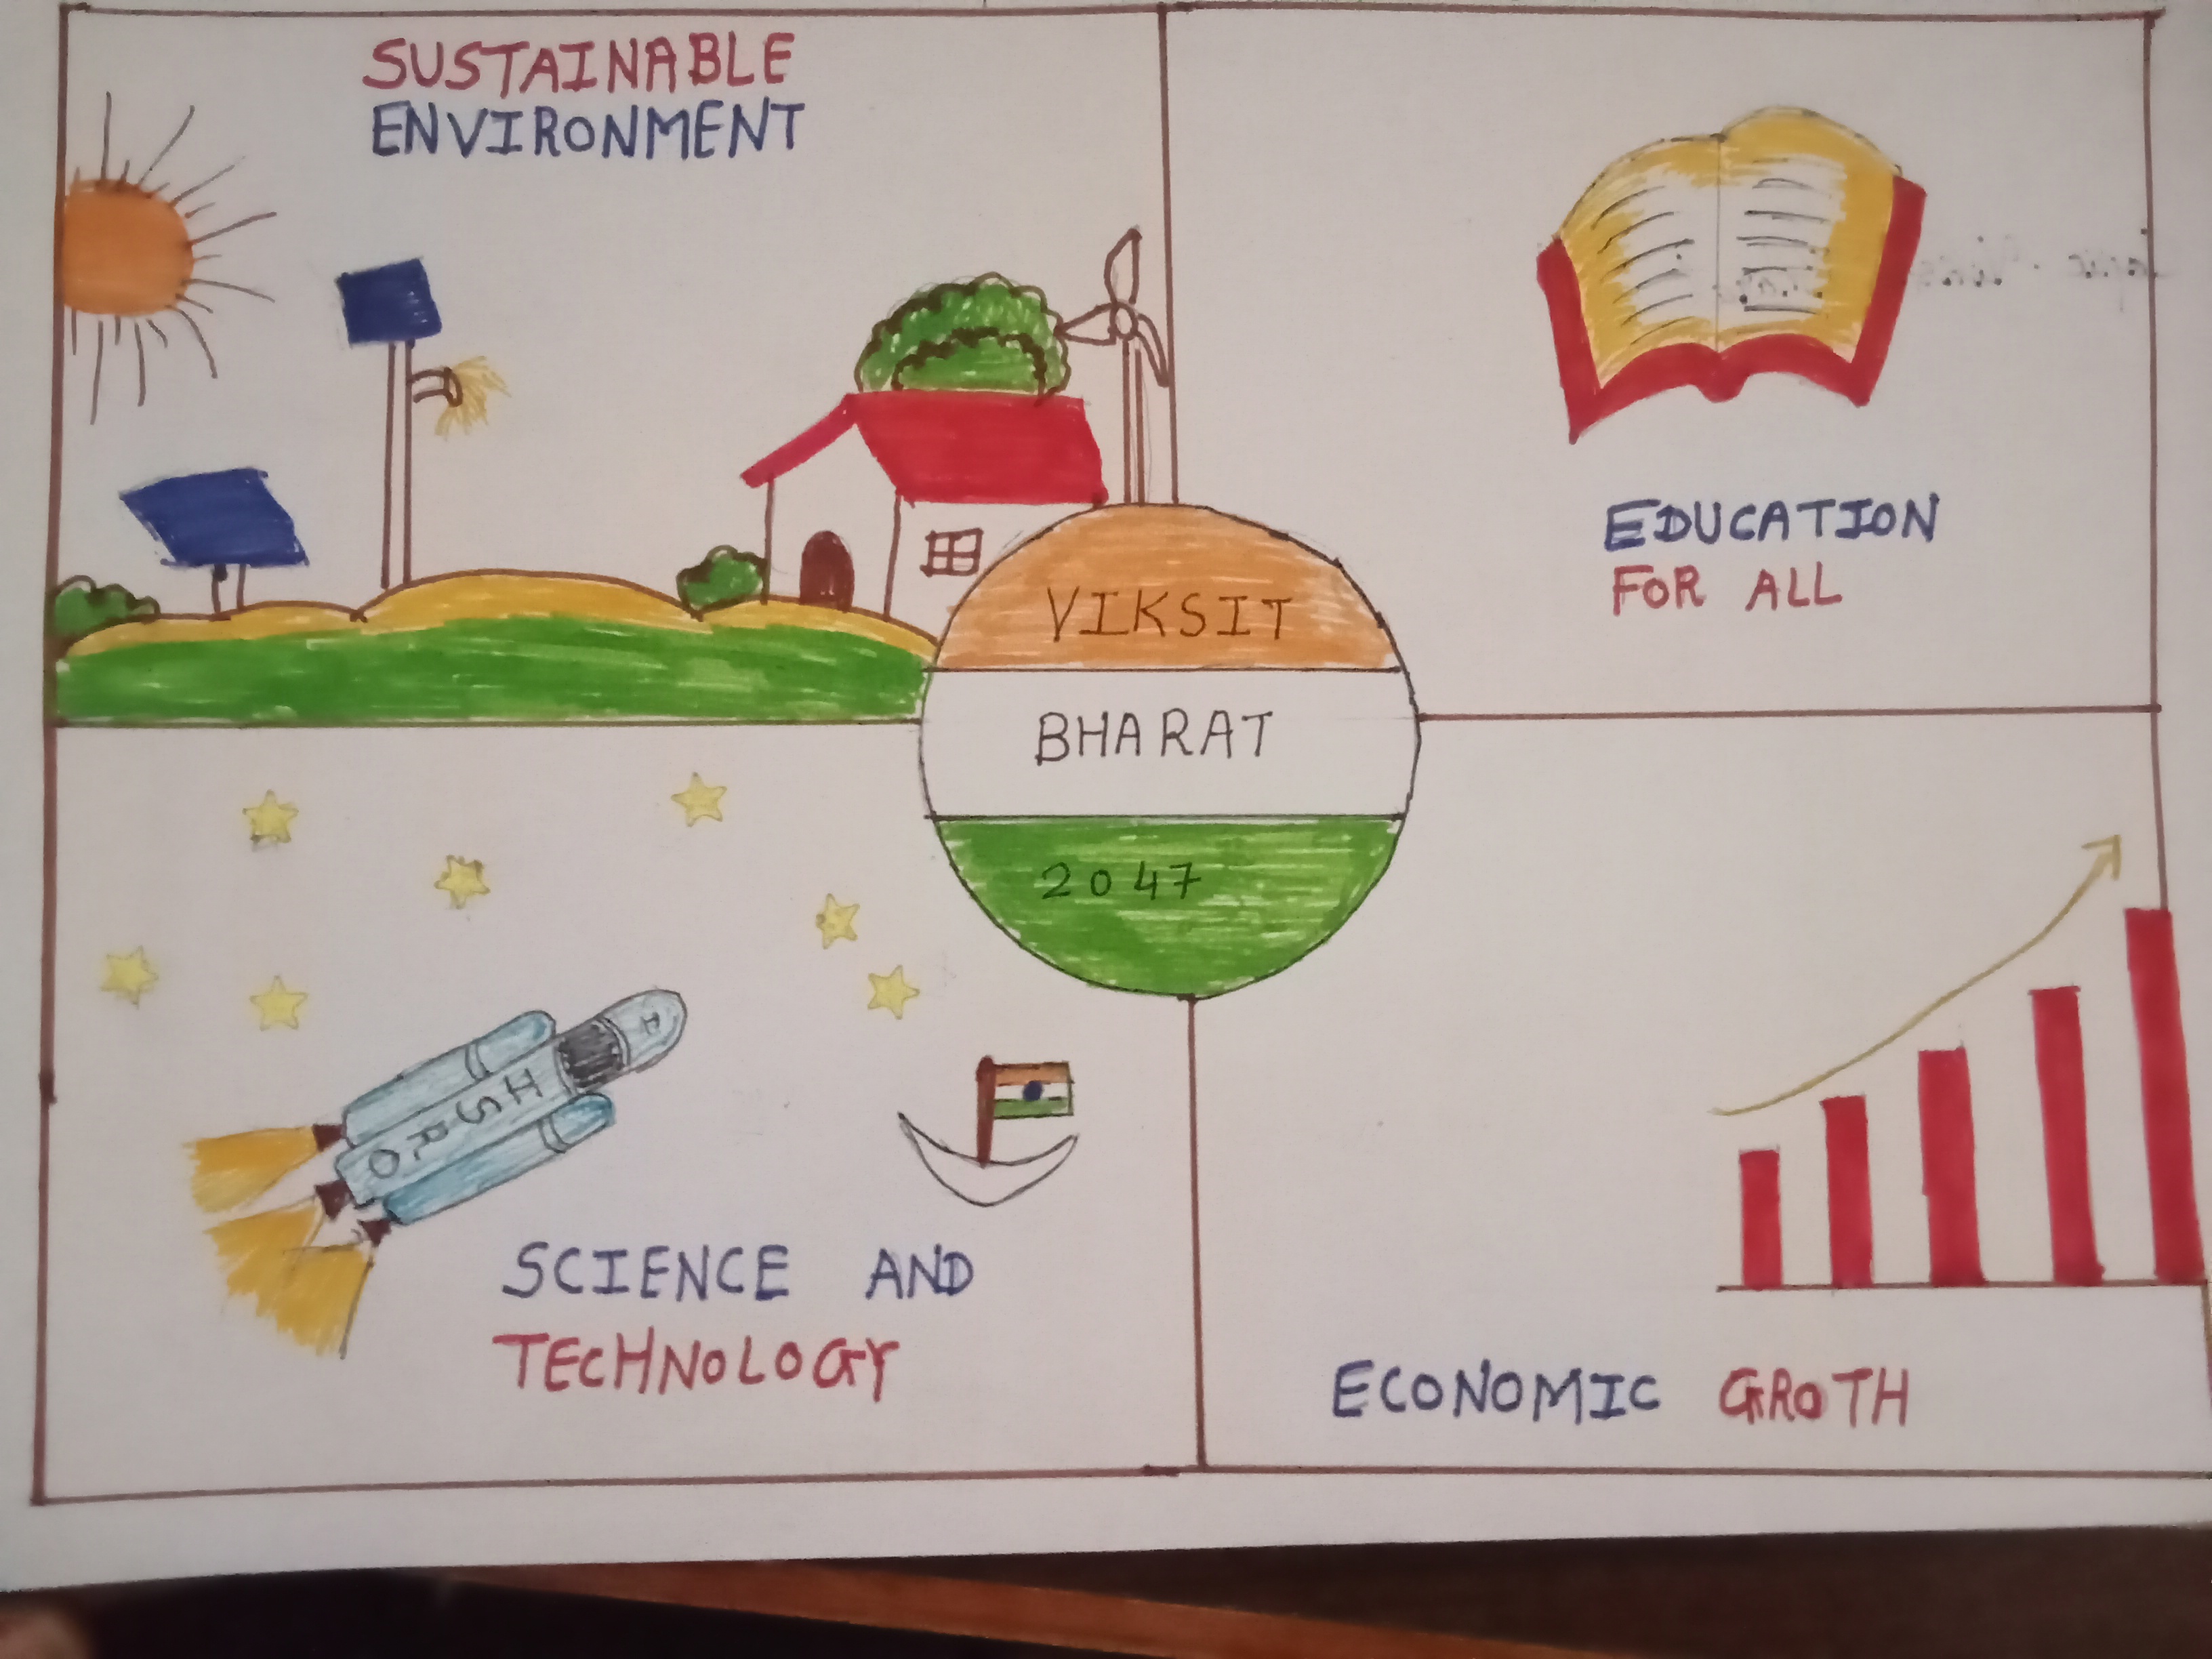 SUSTAINABLE
ENVIRONMENT
EDUCATION
FOR ALL
VIKSIT
BHARAT
2047
ISRO
SCIENCE AND
TECHNOLOGY
ECONOMIC GROTH